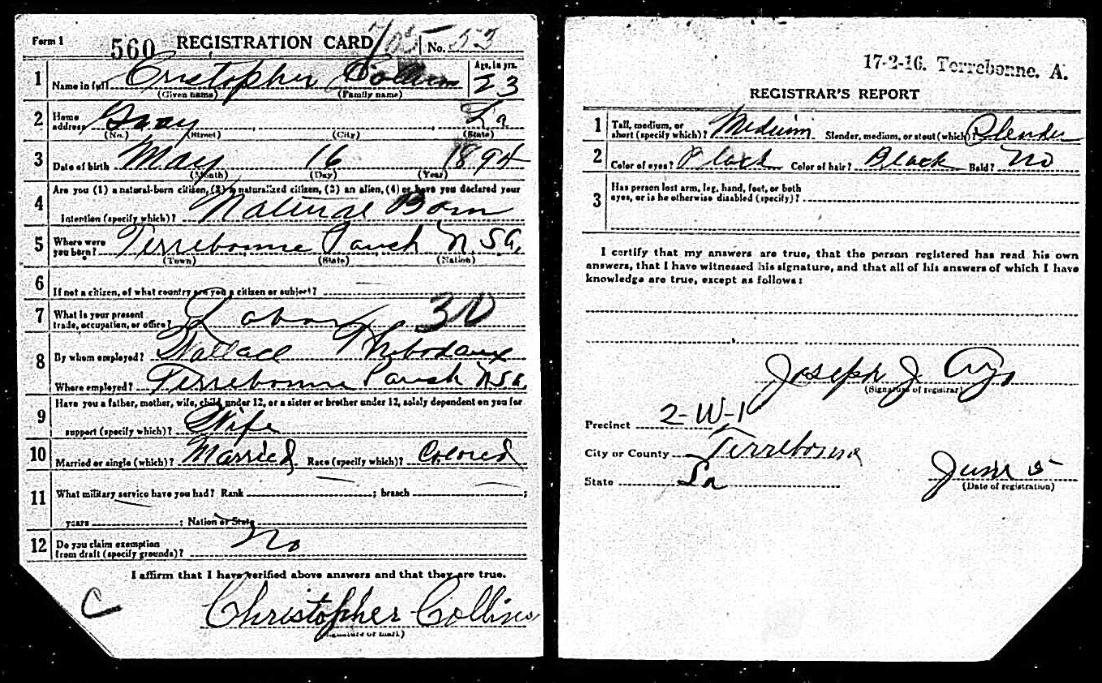 Form 1 560 REGISTRATION CARD No. 53
1 Name in full Cristopher Collins Age, in yrs. 23
(Given name) (Family name)
2 Home address Gray La
(No.) (Street) (City) (State)
3 Date of birth May 16 1894
(Month) (Day) (Year)
4 Are you (1) a natural-born citizen, (2) a naturalized citizen, (3) an alien, (4) or have you declared your
intention (specify which)? Natural Born
5 Where were you born? Terrebonne Parish
(Town) (State) (Nation)
6 If not a citizen, of what country are you a citizen or subject?
7 What is your present trade, occupation, or office? Labor
8 By whom employed? Wallace Thibodaux
Where employed? Terrebonne Parish
9 Have you a father, mother, wife, child under 12, or a sister or brother under 12, solely dependent on you for
support (specify which)? Wife
10 Married or single (which)? Married Race (specify which)? Colored
11 What military service have you had? Rank ; branch ;
years ; Nation or State
12 Do you claim exemption from draft (specify grounds)? No
I affirm that I have verified above answers and that they are true.
C
Christopher Collins
17-2-16. Terrebonne. A.
REGISTRAR'S REPORT
1 Tall, medium, or short (specify which)? Medium Slender, medium, or stout (which)? Slender
2 Color of eyes? Black Color of hair? Black Bald? No
3 Has person lost arm, leg, hand, foot, or both
eyes, or is he otherwise disabled (specify)?
I certify that my answers are true, that the person registered has read his own
answers, that I have witnessed his signature, and that all of his answers of which I have
knowledge are true, except as follows:
Joseph J.
(Signature of registrar)
Precinct 2-W-1
City or County Terrebonne
State La June 5
(Date of registration)